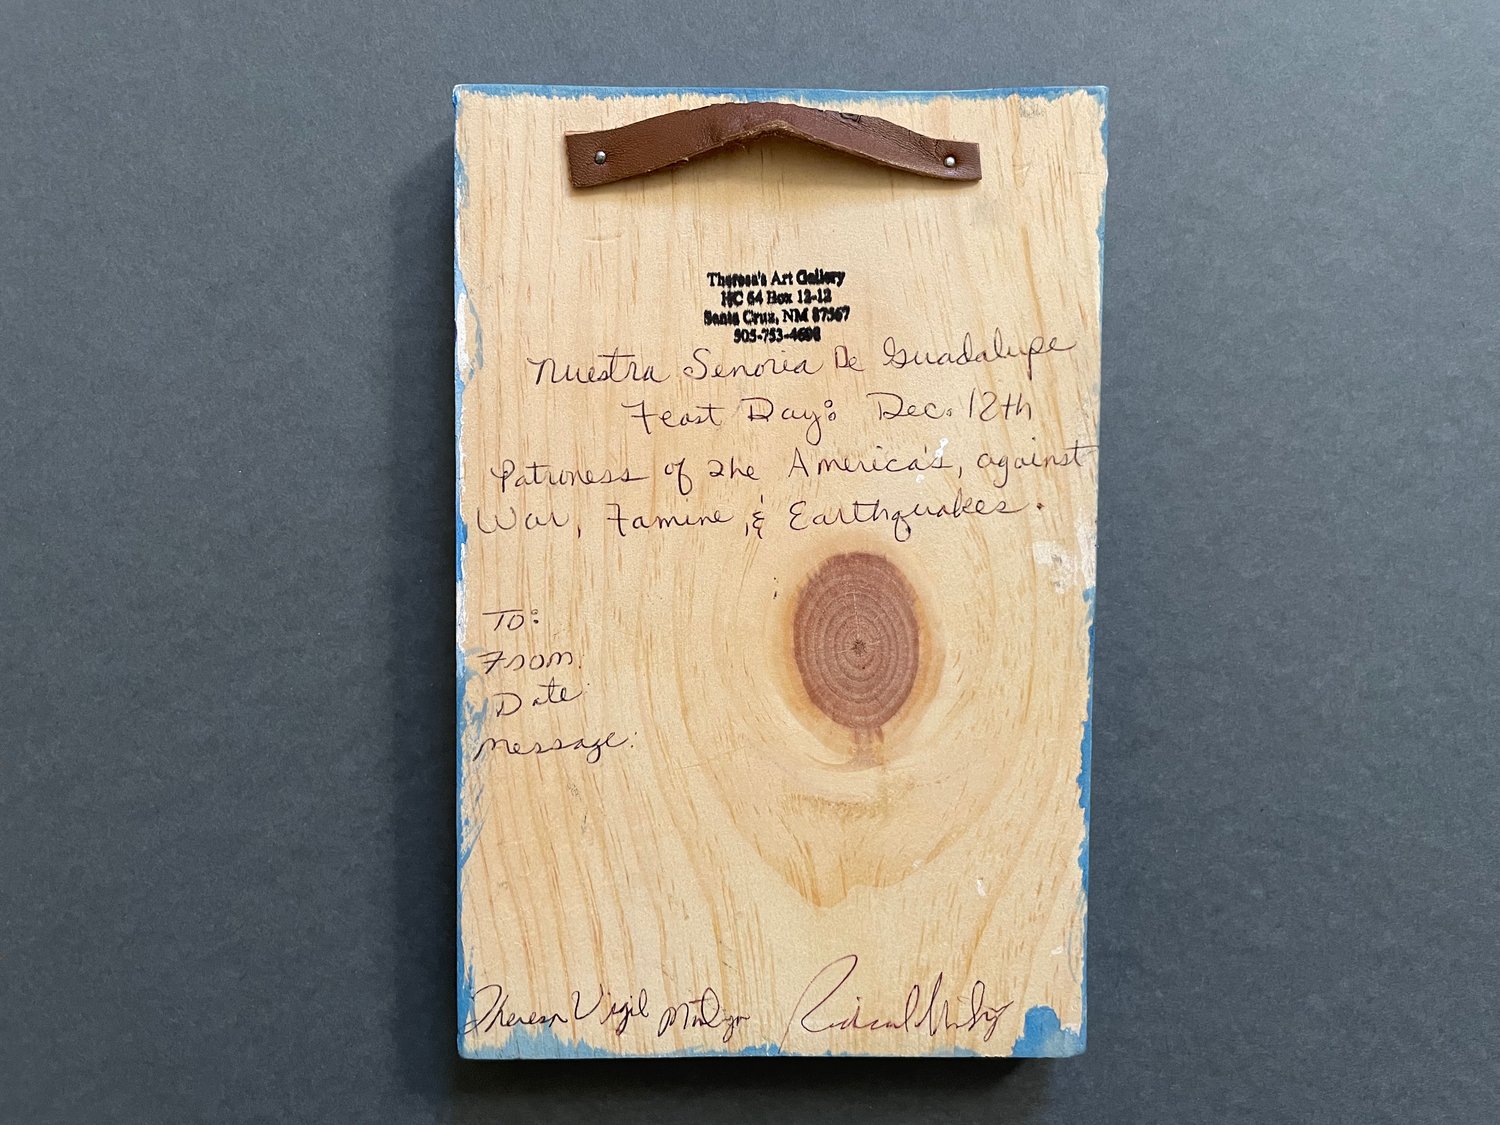 Theresa's Art Gallery
HC 64 Box 12-12
Santa Cruz, NM 87567
505-753-4698
Nuestra Senoria De Guadalupe
Feast Day: Dec. 12th
Patroness of the America's, against
War, Famine, & Earthquakes.
To:
From
Date
Message:
Theresa Virgil